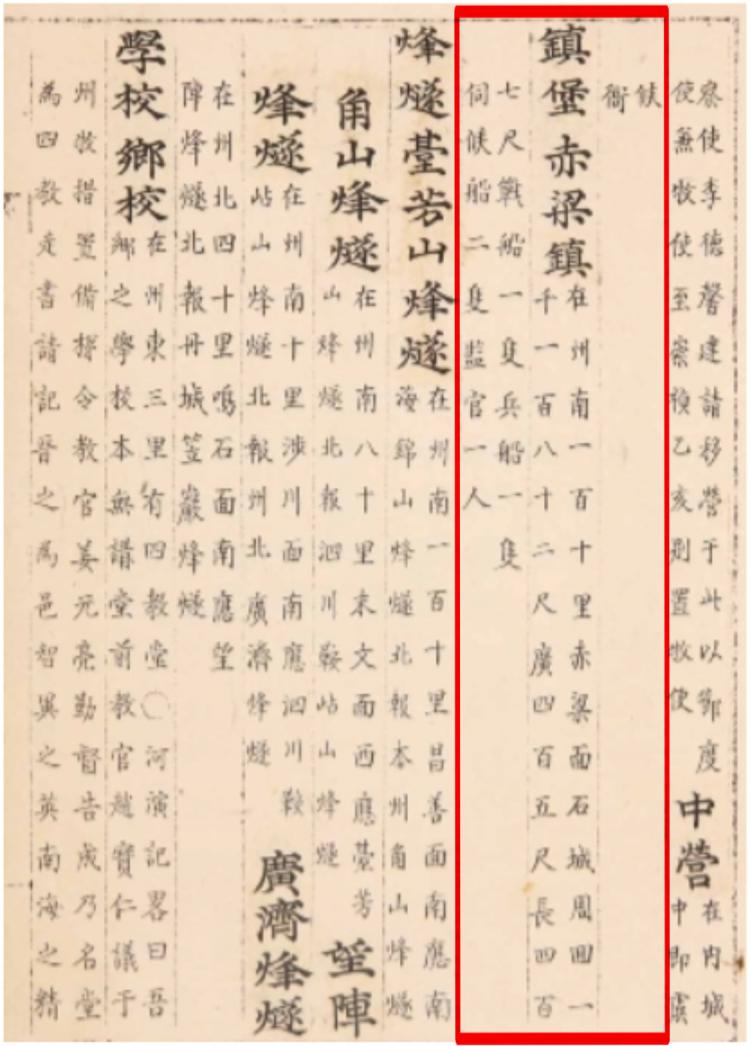 察使李德馨建請移營于此以鄭度
使兼牧使至崇禎乙亥別置牧使
中營
在內城
中即虞
候
衙
鎮堡赤梁鎮
在州南一百十里赤梁面石城周回一
千一百八十二尺廣四百五尺長四百
七尺戰船一隻兵船一隻
伺候船二隻監官一人
烽燧臺芳山烽燧
在州南一百十里昌善面南應南
海錦山烽燧北報本州角山烽燧
角山烽燧
在州南八十里末文面西應臺芳
山烽燧北報泗川鞍岾山烽燧
望陣
烽燧
在州南十里涉川面南應泗川鞍
岾山烽燧北報州北廣濟烽燧
廣濟烽燧
在州北四十里鳴石面南應望
陣烽燧北報丹城笠巖烽燧
學校鄉校
在州東三里有四教堂○河演記畧曰吾
鄉之學校本無講堂前教官趙寶仁議于
州牧措置備擇令教官姜元亮勤督告成乃名堂
為四教走書請記晉之為邑智異之英南海之精